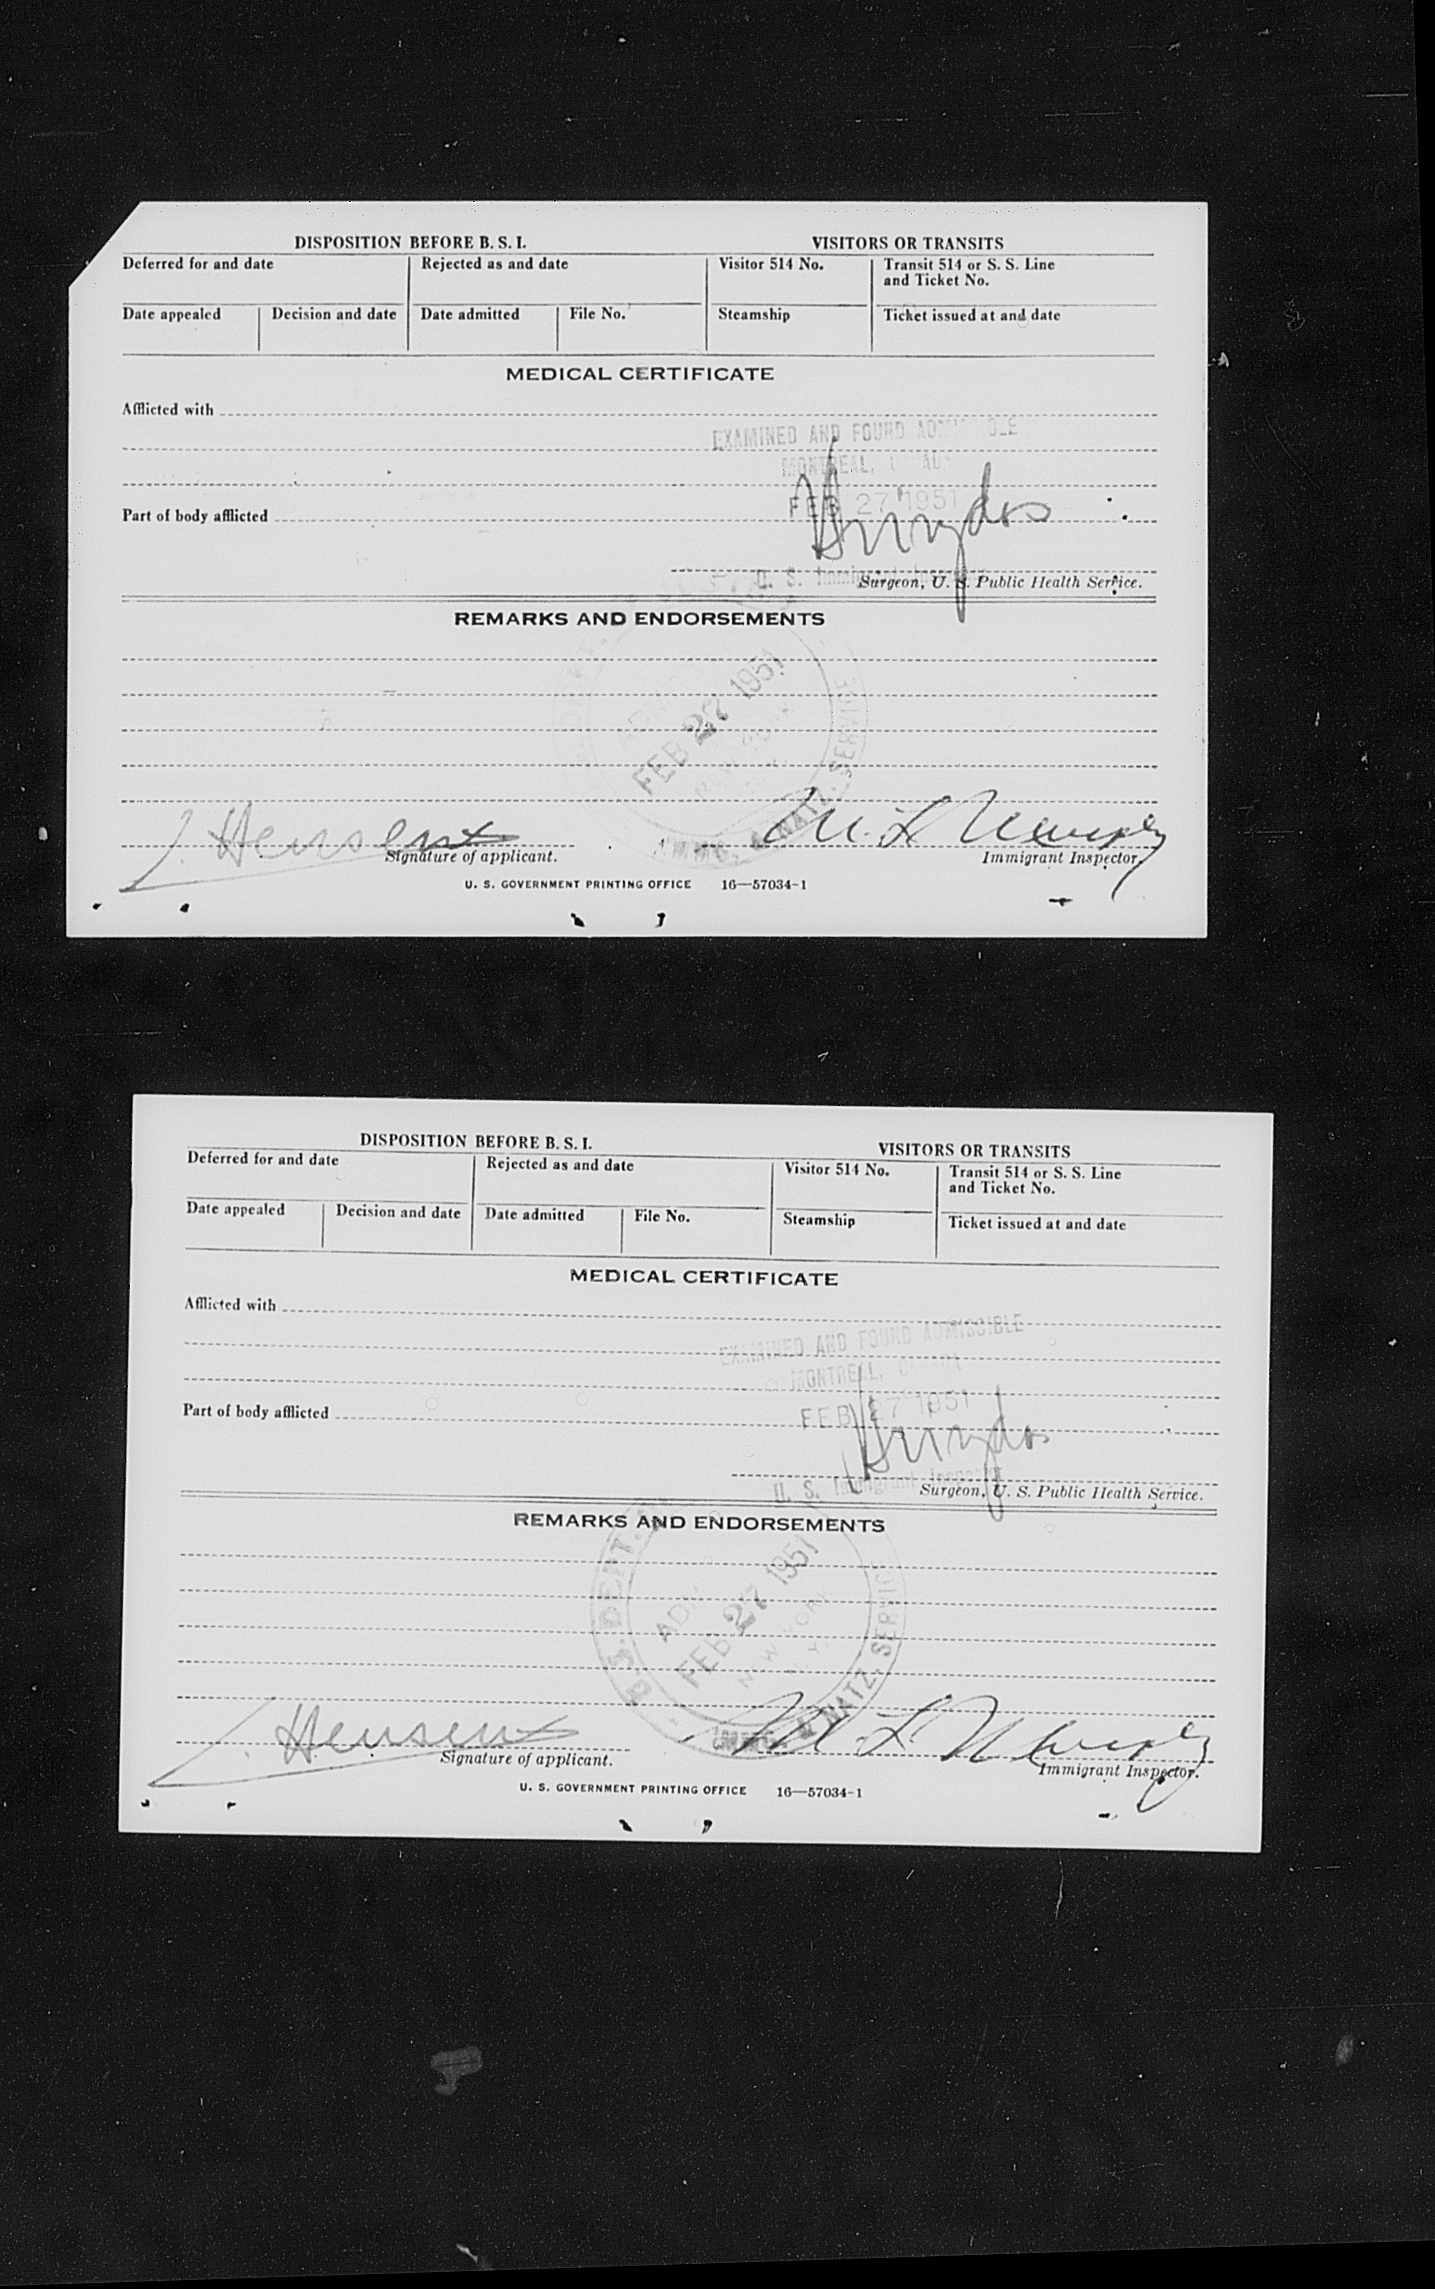 DISPOSITION BEFORE B. S. I. VISITORS OR TRANSITS
Deferred for and date Rejected as and date Visitor 514 No. Transit 514 or S. S. Line
and Ticket No.
Date appealed Decision and date Date admitted File No. Steamship Ticket issued at and date
MEDICAL CERTIFICATE
Afflicted with
EXAMINED AND FOUND
MONTREAL,
FEB 27 1951
Part of body afflicted
U. S.
Surgeon, U. S. Public Health Service.
REMARKS AND ENDORSEMENTS
FEB 27 1951
IMMG. & NATZ. SERVICE
Signature of applicant. Immigrant Inspector.
U. S. GOVERNMENT PRINTING OFFICE 16—57034-1
DISPOSITION BEFORE B. S. I. VISITORS OR TRANSITS
Deferred for and date Rejected as and date Visitor 514 No. Transit 514 or S. S. Line
and Ticket No.
Date appealed Decision and date Date admitted File No. Steamship Ticket issued at and date
MEDICAL CERTIFICATE
Afflicted with
EXAMINED AND FOUND ADMISSIBLE
MONTREAL, CANADA
FEB 27 1951
Part of body afflicted
U. S. Immigrant Inspector
Surgeon, U. S. Public Health Service.
REMARKS AND ENDORSEMENTS
U. S. DEPT.
FEB 27 1951
NEW YORK
N. Y.
IMMG. & NATZ. SERVICE
Signature of applicant. Immigrant Inspector.
U. S. GOVERNMENT PRINTING OFFICE 16—57034-1